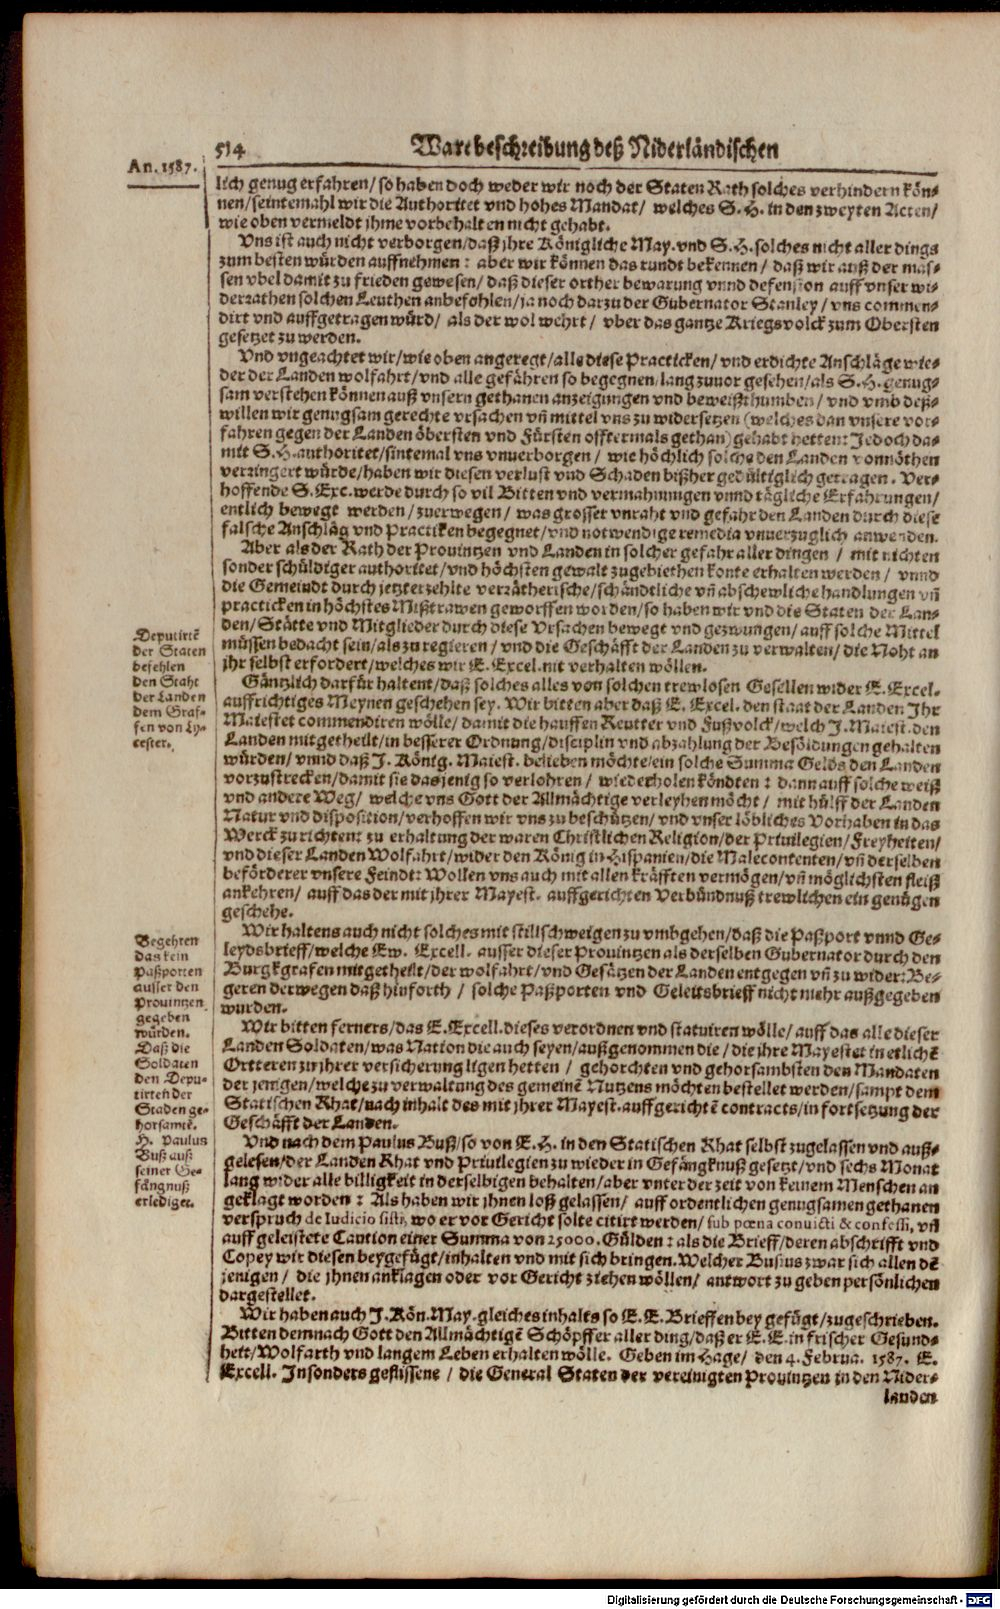 An. 1587.
514 Ware beschreibung deß Niderländischen
lich genug erfahren/ so haben doch weder wir noch der Staten Rath solches verhindern kön-
nen/ seintemahl wir die Authoritet vnd hohes Mandat/ welches S. H. in den zweyten Acten/
wie oben vermeldt jhme vorbehalten nicht gehabt.
Vns ist auch nicht verborgen/ daß jhre Königliche May. vnd S. H. solches nicht aller dings
zum besten würden auffnehmen: aber wir können das rundt bekennen/ daß wir auß der mas-
sen vbel damit zu frieden gewesen/ daß dieser orther bewarung vnnd defension auff vnser wi-
derrathen solchen Leuthen anbefohlen/ ja noch darzu der Gubernator Stanley/ vns commen-
dirt vnd auffgetragen würd/ als der wol wehrt/ vber das gantze Kriegsvolck zum Obersten
gesetzet zu werden.
Vnd vngeachtet wir/ wie oben angeregt/ alle diese Practicken/ vnd erdichte Anschläge wie-
der der Landen wolfahrt/ vnd alle gefähren so begegnen/ lang zuvor gesehen/ als S. H. genug-
sam verstehen können auß vnsern gethanen anzeigungen vnd beweißthumben/ vnd vmb deß-
willen wir genugsam gerechte vrsachen vñ mittel vns zu widersetzen (welches dan vnsere vor-
fahren gegen der Landen öbersten vnd Fürsten offtermals gethan) gehabt hetten: Jedoch da-
mit S. H. authoritet/ sintemal vns vnuerborgen/ wie höchlich solche den Landen vonnöthen
verringert würde/ haben wir diesen verlust vnd Schaden bißher gedültiglich getragen. Ver-
hoffende S. Exc. werde durch so vil Bitten vnd vermahnungen vnnd tägliche Erfahrungen/
entlich bewegt werden/ zuerwegen/ was grosser vnraht vnd gefahr den Landen durch diese
falsche Anschläg vnd Practiken begegnet/ vnd notwendige remedia vnuerzuglich anwenden.
Aber als der Rath der Prouintzen vnd Landen in solcher gefahr aller dingen/ mit nichten
sonder schüldiger authoritet/ vnd höchsten gewalt zugebiethen konte erhalten werden/ vnnd
die Gemeindt durch jetzterzehlte verrätherische/ schändtliche vñ abschewliche handlungen vñ
practicken in höchstes Mißtrawen geworffen worden/ so haben wir vnd die Staten der Lan-
den/ Stätte vnd Mitglieder durch diese Vrsachen bewegt vnd gezwungen/ auff solche Mittel
müssen bedacht sein/ als zu regieren/ vnd die Geschäfft der Landen zu verwalten/ die Noht an
jhr selbst erfordert/ welches wir E. Excel. nit verhalten wöllen.
Deputirtẽ
der Staten
befehlen
den Staht
der Landen
dem Graf-
fen von Ly-
cester.
Gäntzlich darfür haltent/ daß solches alles von solchen trewlosen Gesellen wider E. Excel.
auffrichtiges Meynen geschehen sey. Wir bitten aber daß E. Excel. den staat der Landen Ihr
Maiestet commendiren wölle/ damit die hauffen Reutter vnd Fußvolck/ welch J. Maiest. den
Landen mitgetheilt/ in besserer Ordnung/ disciplin vnd abzahlung der Besöldungen gehalten
würden/ vnnd daß J. König. Maiest. belieben möchte/ ein solche Summa Gelds den Landen
vorzustrecken/ damit sie das jenig so verlohren/ wiederholen köndten: dann auff solche weiß
vnd andere Weg/ welche vns Gott der Allmächtige verleyhen möcht/ mit hülff der Landen
Natur vnd disposition/ verhoffen wir vns zu beschützen/ vnd vnser löbliches Vorhaben in das
Werck zu richten: zu erhaltung der waren Christlichen Religion/ der Priuilegien/ Freyheiten/
vnd dieser Landen Wolfahrt/ wider den König in Hispanien/ die Malecontenten/ vñ derselben
beförderer vnsere Feindt: Wollen vns auch mit allen kräfften vermögen/ vñ möglichsten fleiß
ankehren/ auff das der mit jhrer Mayest. auffgerichten Verbündnuß trewlichen ein genügen
geschehe.
Begehren
das kein
Paßporten
ausser den
Prouintzen
gegeben
würden.
Wir haltens auch nicht solches mit stillschweigen zu vmbgehen/ daß die Paßport vnnd Ge-
leydsbrieff/ welche Ew. Excell. ausser dieser Prouintzen als derselben Gubernator durch den
Burgkgrafen mitgetheilt/ der wolfahrt/ vnd Gesätzen der Landen entgegen vñ zu wider: Be-
geren derwegen daß hinforth/ solche Paßporten vnd Geleitsbrieff nicht mehr außgegeben
wurden.
Daß die
Soldaten
den Depu-
tirten der
Staden ge-
horsamẽ.
Wir bitten ferners/ das E. Excell. dieses verordnen vnd statuiren wölle/ auff das alle dieser
Landen Soldaten/ was Nation die auch seyen/ außgenommen die/ die jhre Mayestet in etlichẽ
Ortteren zu jhrer versicherung ligen hetten/ gehorchten vnd gehorsambsten den Mandaten
der jenigen/ welche zu verwaltung des gemeinẽ Nutzens möchten bestellet werden/ sampt dem
Statischen Rhat/ nach inhalt des mit jhrer Mayest. auffgerichtẽ contracts/ in fortsetzung der
Geschäfft der Landen.
H. Paulus
Buß auß
seiner Ge-
fängnuß
erlediget.
Vnd nach dem Paulus Buß/ so von E. H. in den Statischen Rhat selbst zugelassen vnd auß-
gelesen/ der Landen Rhat vnd Priuilegien zu wieder in Gefängknuß gesetzt/ vnd sechs Monat
lang wider alle billigkeit in derselbigen behalten/ aber vnter der zeit von keinem Menschen an
geklagt worden: Als haben wir jhnen loß gelassen/ auff ordentlichen genugsamen gethanen
verspruch de Iudicio sisti, wo er vor Gericht solte citirt werden/ sub pœna convicti & confessi, vñ
auff geleistete Caution einer Summa von 25000. Gülden: als die Brieff/ deren abschrifft vnd
Copey wir diesen beygefügt/ inhalten vnd mit sich bringen. Welcher Busius zwar sich allen dẽ
jenigen/ die jhnen anklagen oder vor Gericht ziehen wöllen/ antwort zu geben persönlichen
dargestellet.
Wir haben auch J. Kön. May. gleiches inhalts so E. E. Brieffen bey gefügt/ zugeschrieben.
Bitten demnach Gott den Allmächtigẽ Schöpffer aller ding/ daß er E. E. in frischer Gesund-
heit/ Wolfarth vnd langem Leben erhalten wölle. Geben im Hage/ den 4. Februa. 1587. E.
Excell. Insonders geflissene/ die General Staten der vereinigten Prouintzen in den Nider-
landen
Digitalisierung gefördert durch die Deutsche Forschungsgemeinschaft - DFG